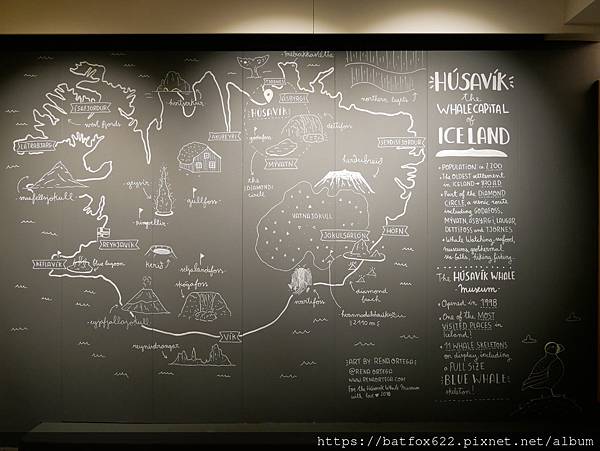 HÚSAVÍK
the
WHALE CAPITAL
of
ICELAND
• POPULATION is 2.200
• The OLDEST settlement
in ICELAND → 870 AD
• Part of the DIAMOND
CIRCLE, a scenic route
including GODAFOSS,
MÝVATN, ASBYRGI, LAUGAR,
DETTIFOSS and TJÖRNES
• Whale Watching, seafood,
museums, geothermal
sea baths, hiking, fishing...
The HÚSAVÍK WHALE
Museum
• Opened in 1998
• One of the MOST
VISITED PLACES in
Iceland!
• 11 WHALE SKELETONS
on display including
a FULL SIZE
BLUE WHALE
skeleton!
ÍSAFJÖRDUR
west fjords
LÁTRABJARG
snaefellsjökull
KEFLAVÍK
REYKJAVÍK
blue lagoon
geysir
þingvellir
gullfoss
kerið
seljalandsfoss
skógafoss
eyjafjallajökull
reynisdrangar
VÍK
hvítserkur
AKUREYRI
TJORNES
ASBYRGI
godafoss
dettifoss
MÝVATN
the
DIAMOND
circle
northern lights
SEYDISFJORDUR
herðubreið
VATNAJÖKULL
JÖKULSARLON
HÖFN
diamond
beach
svartifoss
hvannadalshnúkur
(2110 m)
ART BY RENA ORTEGA
@RENA.ORTEGA
WWW.RENAORTEGA.COM
For the Húsavík Whale Museum
with love 2018
https://batfox622.pixnet.net/album